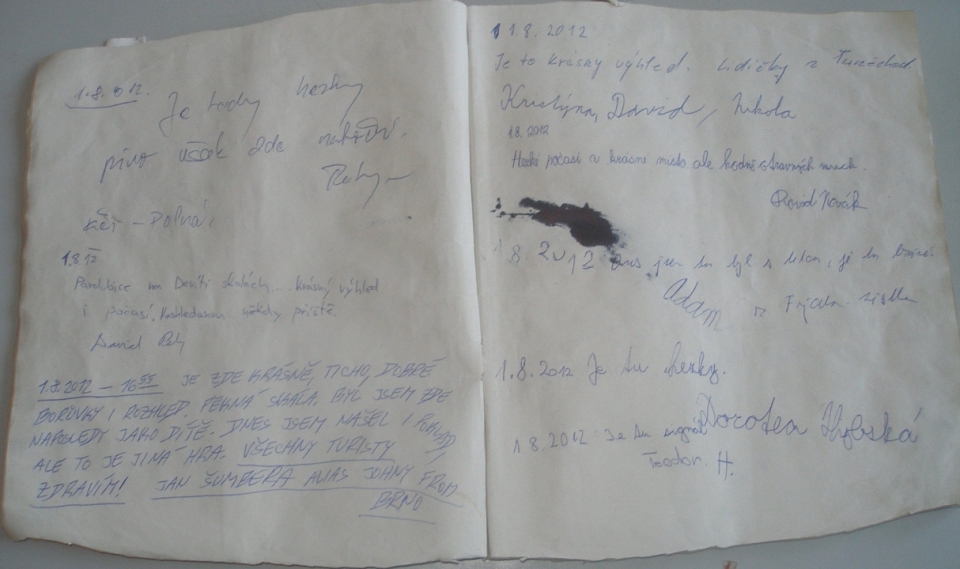 1.8.2012.
Je tady hezky
pivo však zde nehodní.
KČT – POLNÁ.
1.8.12
Pardubice na Devíti skálách... krásný výhled
i počasí. Nashledanou někdy příště.
David
1.8.2012 – 16 55 JE ZDE KRÁSNĚ, TICHO, DOBRÉ
BORŮVKY I ROZHLED. PĚKNÁ SKÁLA. BYL JSEM ZDE
NAPOSLEDY JAKO DÍTĚ. DNES JSEM NAŠEL I POKLAD,
ALE TO JE JINÁ HRA. VŠECHNY TURISTY
ZDRAVÍM! JAN ŠUMBERA ALIAS JOHNY FROM
BRNO
1.8.2012
Je to krásny výhled. Lidičky z
Kristýna, David, Nikola
1.8.2012
Hezké počasí a krásné místo ale hodně otravných much.
David Novák
1.8.2012 jsem tu byl s je tu
Adam z
1.8.2012 Je tu hezky.
Dorotea
1.8.2012 Je tu
Teodor. H.